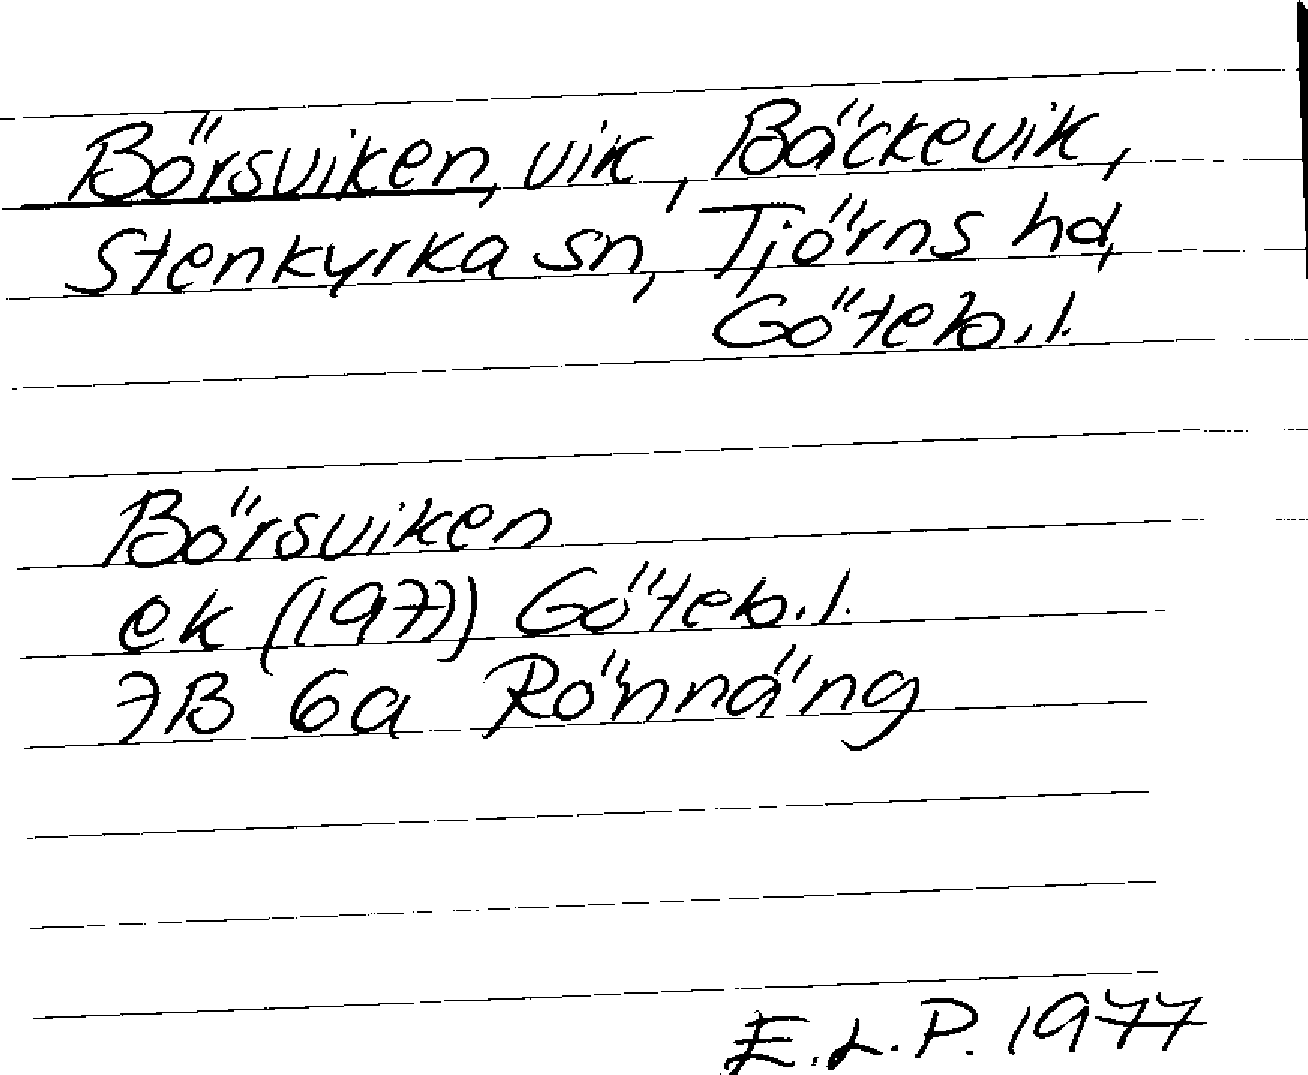 Börsviken, vik, Bäckevik,
Stenkyrka sn, Tjörns hd,
Göteb.l.
Börsviken
ek (1977) Göteb.l.
7B 6a Rönnäng
E.L.P. 1977